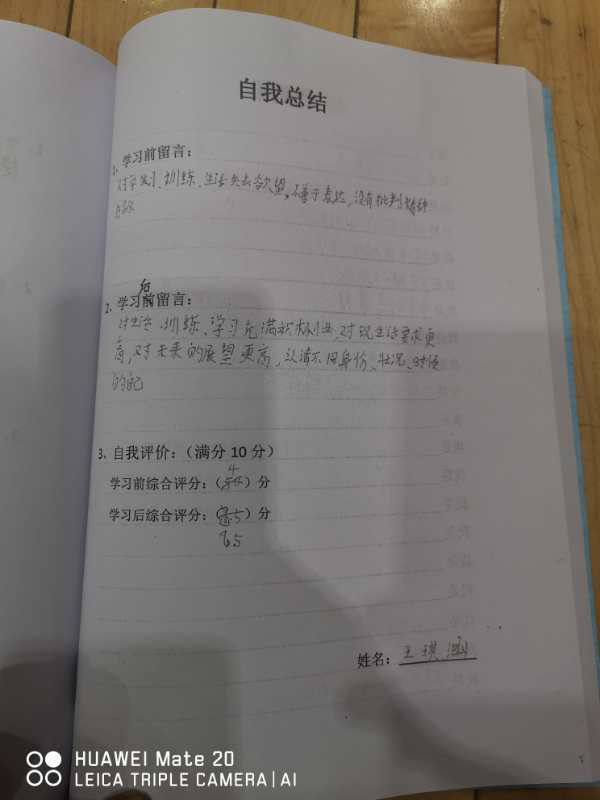 自我总结
1、学习前留言：
对学习、训练、生活失去欲望，不善于表达，没有批判精神
2、学习后前留言：
对生活、训练、学习充满积极性，对现生活要求更
高，对未来的展望更高，认清不同身份、状况、时候
的自己
3、自我评价：（满分10分）
4
学习前综合评分：（）分
学习后综合评分：（）分
姓名：王琪
HUAWEI Mate 20
LEICA TRIPLE CAMERA | AI